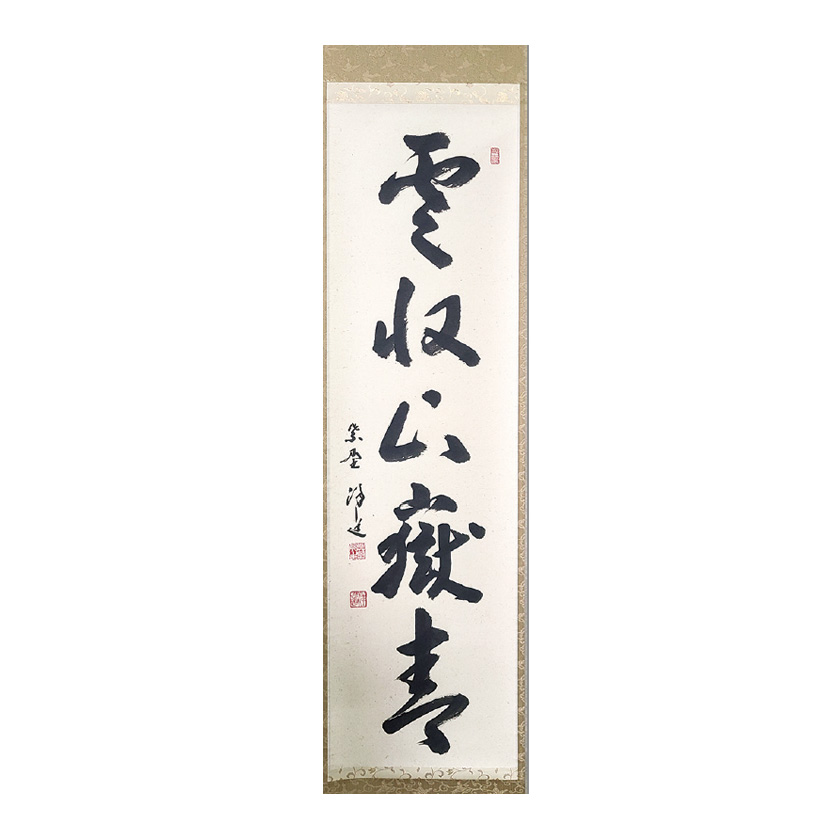 雲収山嶽青
紫野 浄道